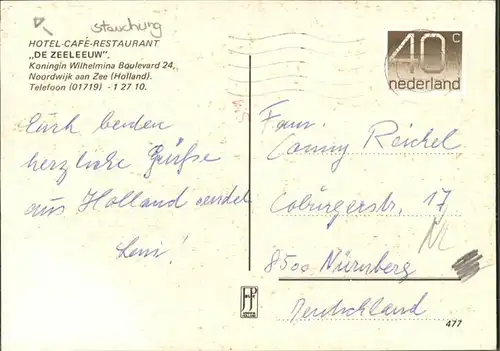 stauchung
HOTEL-CAFÉ-RESTAURANT
„DE ZEELEEUW",
Koningin Wilhelmina Boulevard 24,
Noordwijk aan Zee (Holland).
Telefoon (01719) - 1 27 10.
40 c
nederland
Euch beiden
herzliche Grüße
aus Holland sendet
Leni!
Fam.
Conny Reichel
Coburgerstr. 17
8500 Nürnberg
Deutschland
477